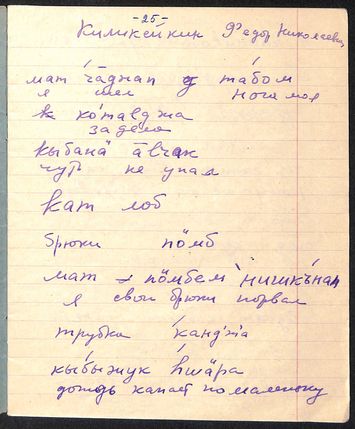 -25-
Килшкейкин Фёдор Николаевич
мат ча́днап табом
я шел нога моя
ко́тавджа
задела
кыбана̄ а̄вчак
чуть не упал
кат лоб
брюки пöмб
мат пöмбем нишкъ́нап
я свои брюки порвал
трубка ка́нджа
кы́быжук һша̄ра
дождь капает помаленьку